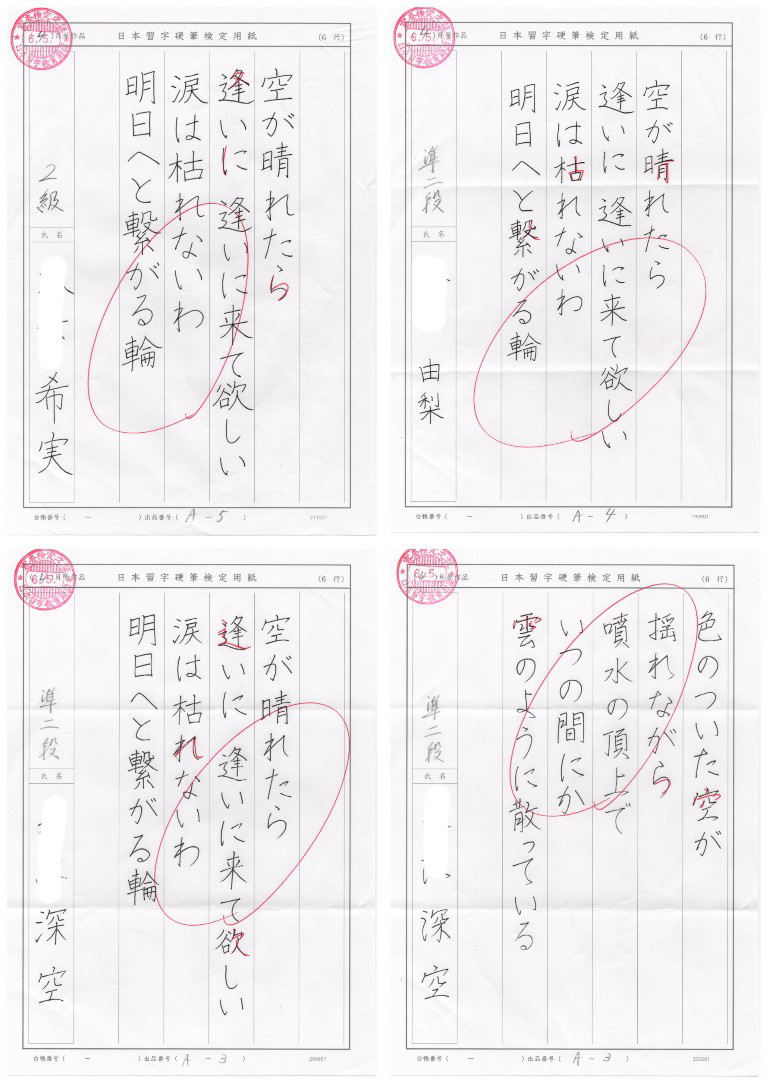 (4)月号作品
日本習字硬筆検定用紙
(6 行)
空が晴れたら
逢いに 逢いに来て欲しい
涙は枯れないわ
明日へと繋がる輪
2級
氏名
希実
台帳番号( － )出品番号( A－5 )
211001
(4)月号作品
日本習字硬筆検定用紙
(6 行)
空が晴れたら
逢いに 逢いに来て欲しい
涙は枯れないわ
明日へと繋がる輪
準二段
氏名
由梨
台帳番号( － )出品番号( A－4 )
190901
(4)月号作品
日本習字硬筆検定用紙
(6 行)
空が晴れたら
逢いに 逢いに来て欲しい
涙は枯れないわ
明日へと繋がる輪
準二段
氏名
深空
台帳番号( － )出品番号( A－3 )
200601
月号作品
日本習字硬筆検定用紙
(6 行)
色のついた空が
揺れながら
噴水の頂上で
いつの間にか
雲のように散っている
準二段
氏名
深空
台帳番号( － )出品番号( A－3 )
200601